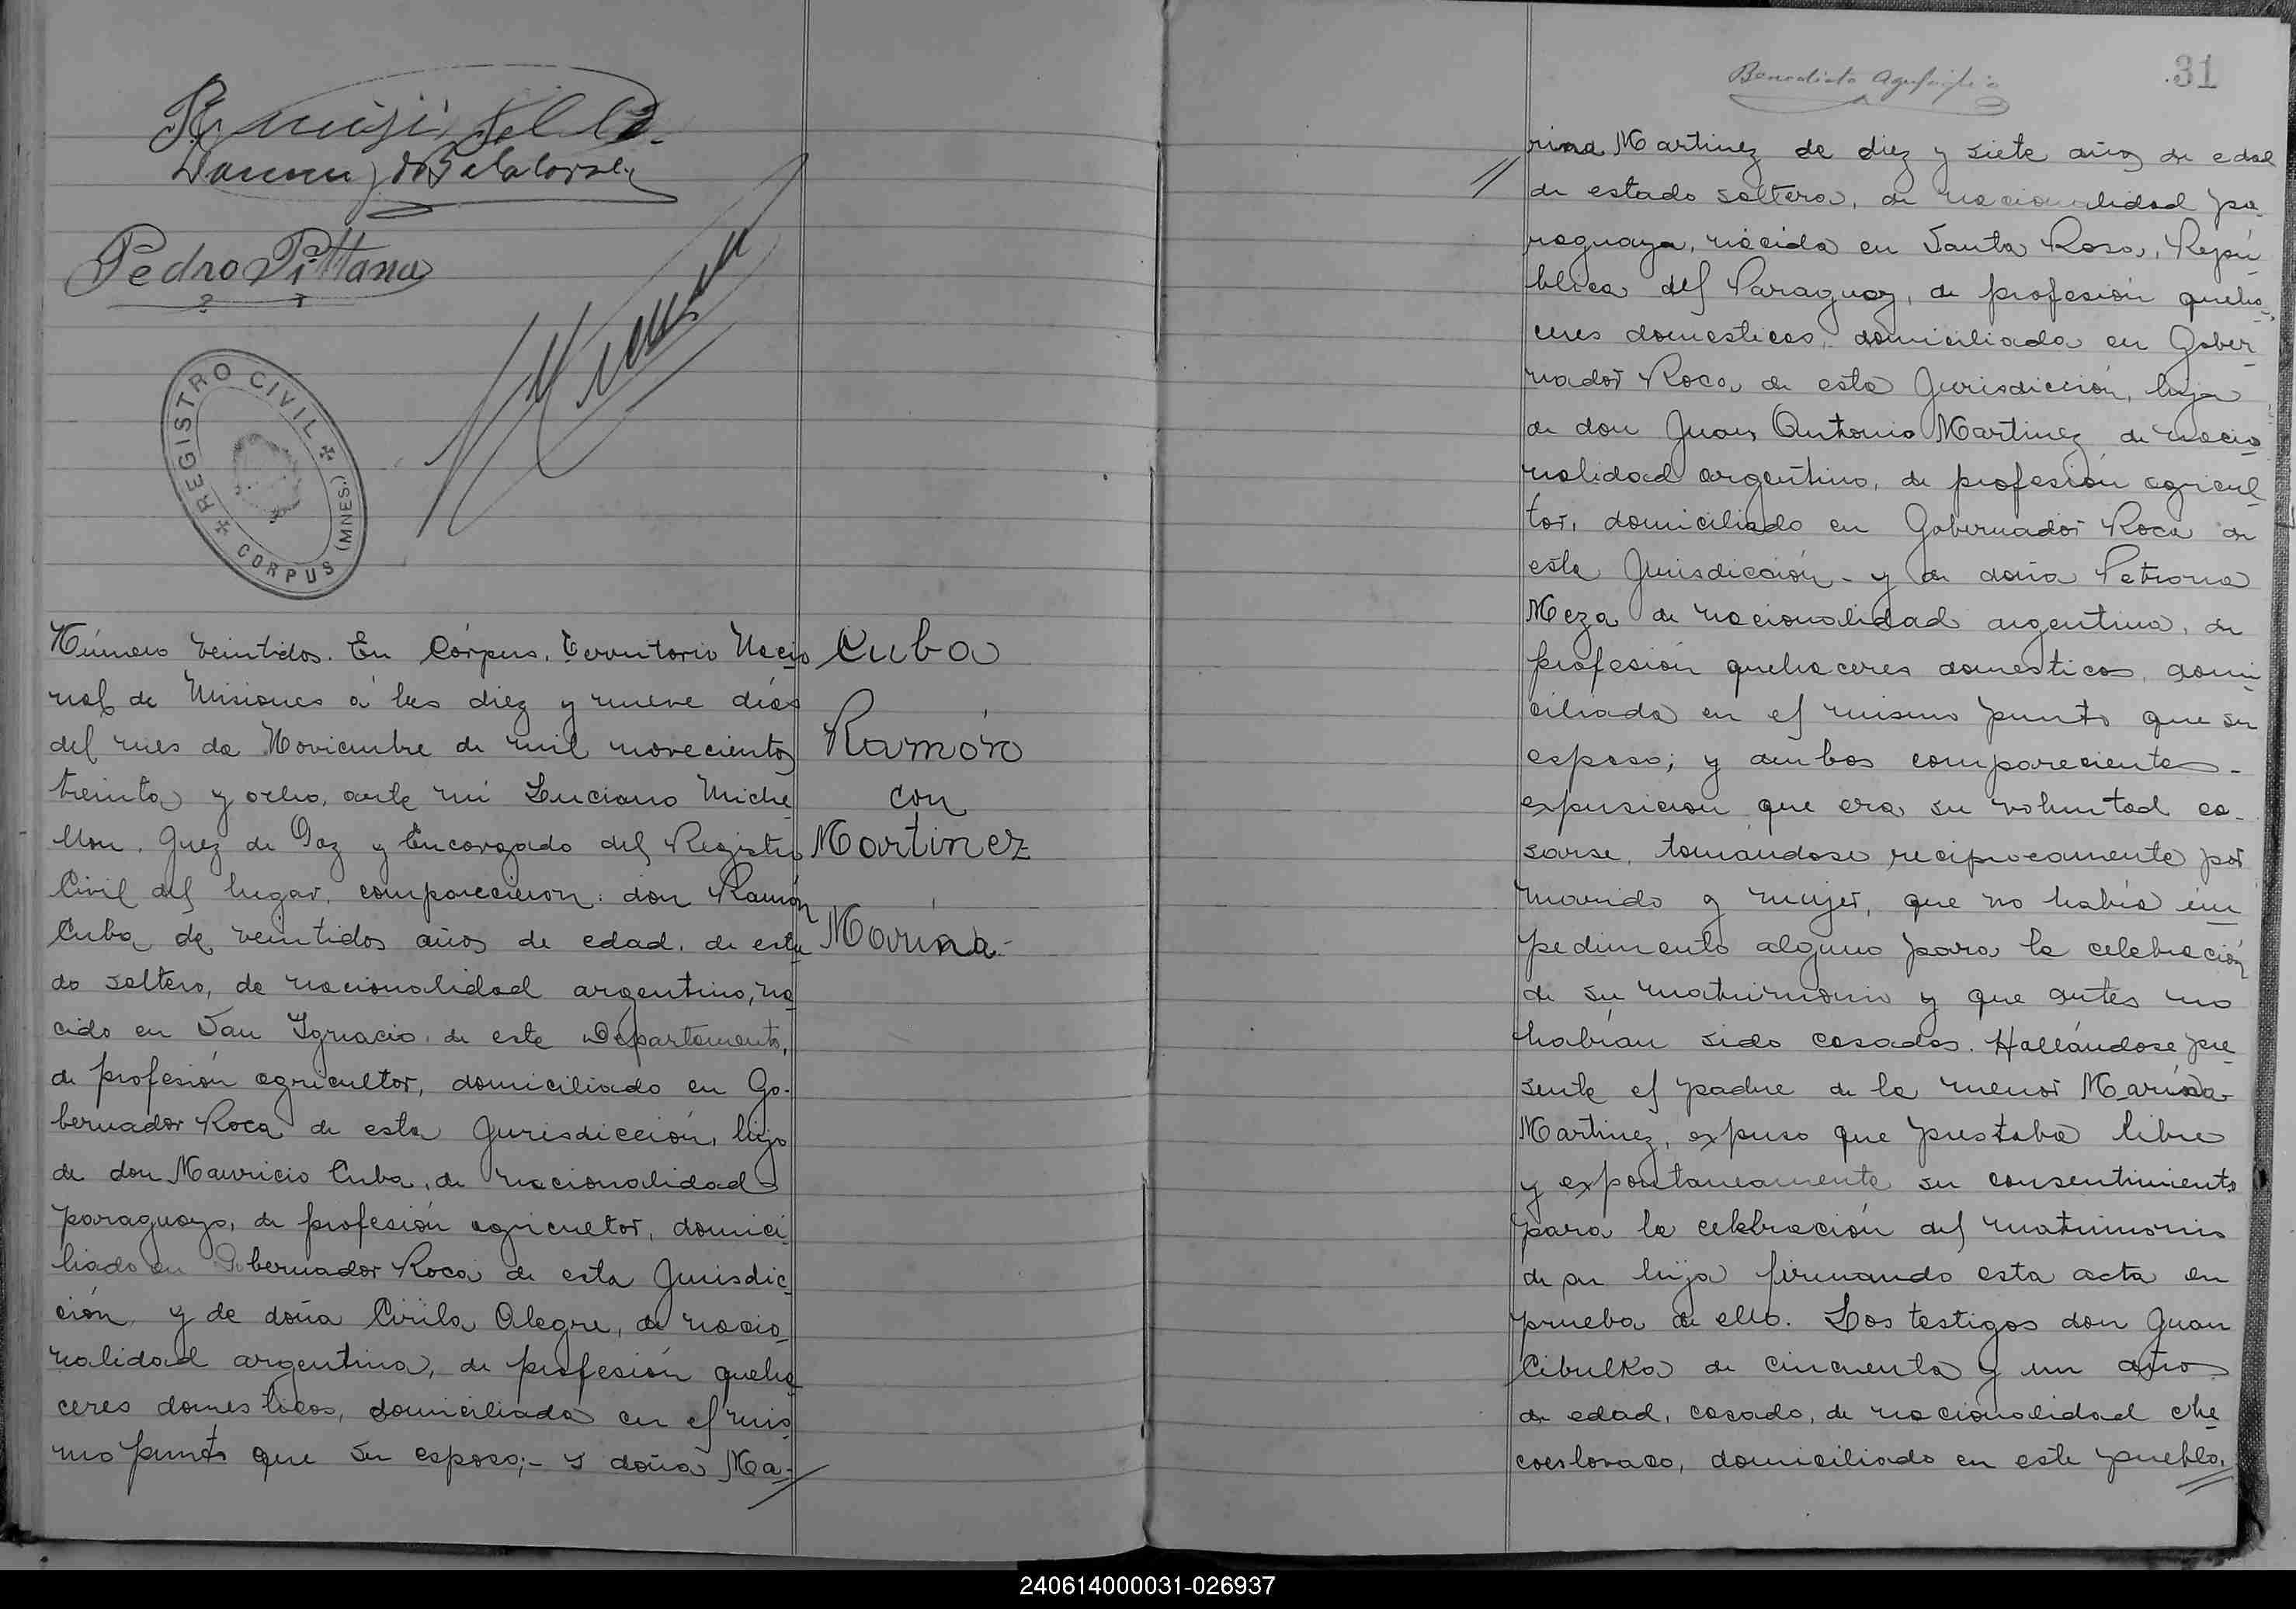 Pedro Pittana
REGISTRO CIVIL
CORPUS (MNES.)
Número veintidos. En Córpus, Territorio Nacio
nal de Misiones á los diez y nueve días
del mes de Noviembre de mil novecientos
treinta y ocho, ante mi Luciano Miche
llon, Juez de Paz y Encargado del Registro
Civil del lugar, comparecieron: don Ramón
Cuba de veintidos años de edad, de esta
do soltero, de nacionalidad argentino, na
cido en San Ignacio, de este Departamento,
de profesión agricultor, domiciliado en Go-
bernador Roca de esta Jurisdicción, hijo
de don Mauricio Cuba, de nacionalidad
paraguayo, de profesión agricultor, domici
liado en Gobernador Roca de esta Jurisdic
ción y de doña Cirila Alegre, de nacio
nalidad argentina, de profesión queha
ceres domesticos, domiciliada en el mis
mo punto que su esposo;- y doña Ma-
Cuba
Ramón
con
Martinez
Marina-
31
Benedicta
rina Martinez de diez y siete años de edad
de estado soltera, de nacionalidad pa
raguaya, nacida en Santa Rosa, Repú
blica del Paraguay, de profesión queha
ceres domesticos, domiciliada en Gober
nador Roca de esta Jurisdicción, hija
de don Juan Antonio Martinez de nacio
nalidad argentino, de profesión agricul
tor, domiciliado en Gobernador Roca de
esta Jurisdicción- y de doña Petrona
Meza de nacionalidad argentina, de
profesión quehaceres domesticos, domi
ciliada en el mismo punto que su
esposo; y ambos comparecientes-
expusieron que era su voluntad ca-
sarse, tomándose reciprocamente por
marido y mujer, que no había im
pedimento alguno para la celebración
de su matrimonio y que antes no
habían sido casados. Hallándose pre
sente el padre de la menor Marina
Martinez, expuso que prestaba libre
y expontaneamente su consentimiento
para la celebración del matrimonio
de su hija firmando esta acta en
prueba de ello. Los testigos don Juan
Cibulka de cincuenta y un años
de edad, casado, de nacionalidad che
coeslovaco, domiciliado en este pueblo,
240614000031-026937